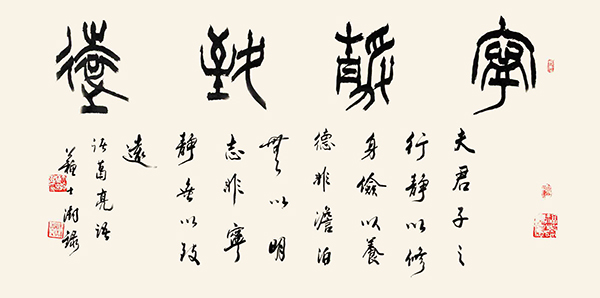 寧靜致遠
夫君子之
行靜以修
身儉以養
德非澹泊
無以明
志非寧
靜無以致
遠
諸葛亮語
蘇士澍錄